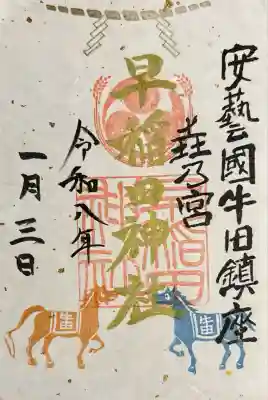 安藝國牛田鎮座
荘乃宮
早稲田神社
令和八年
一月三日